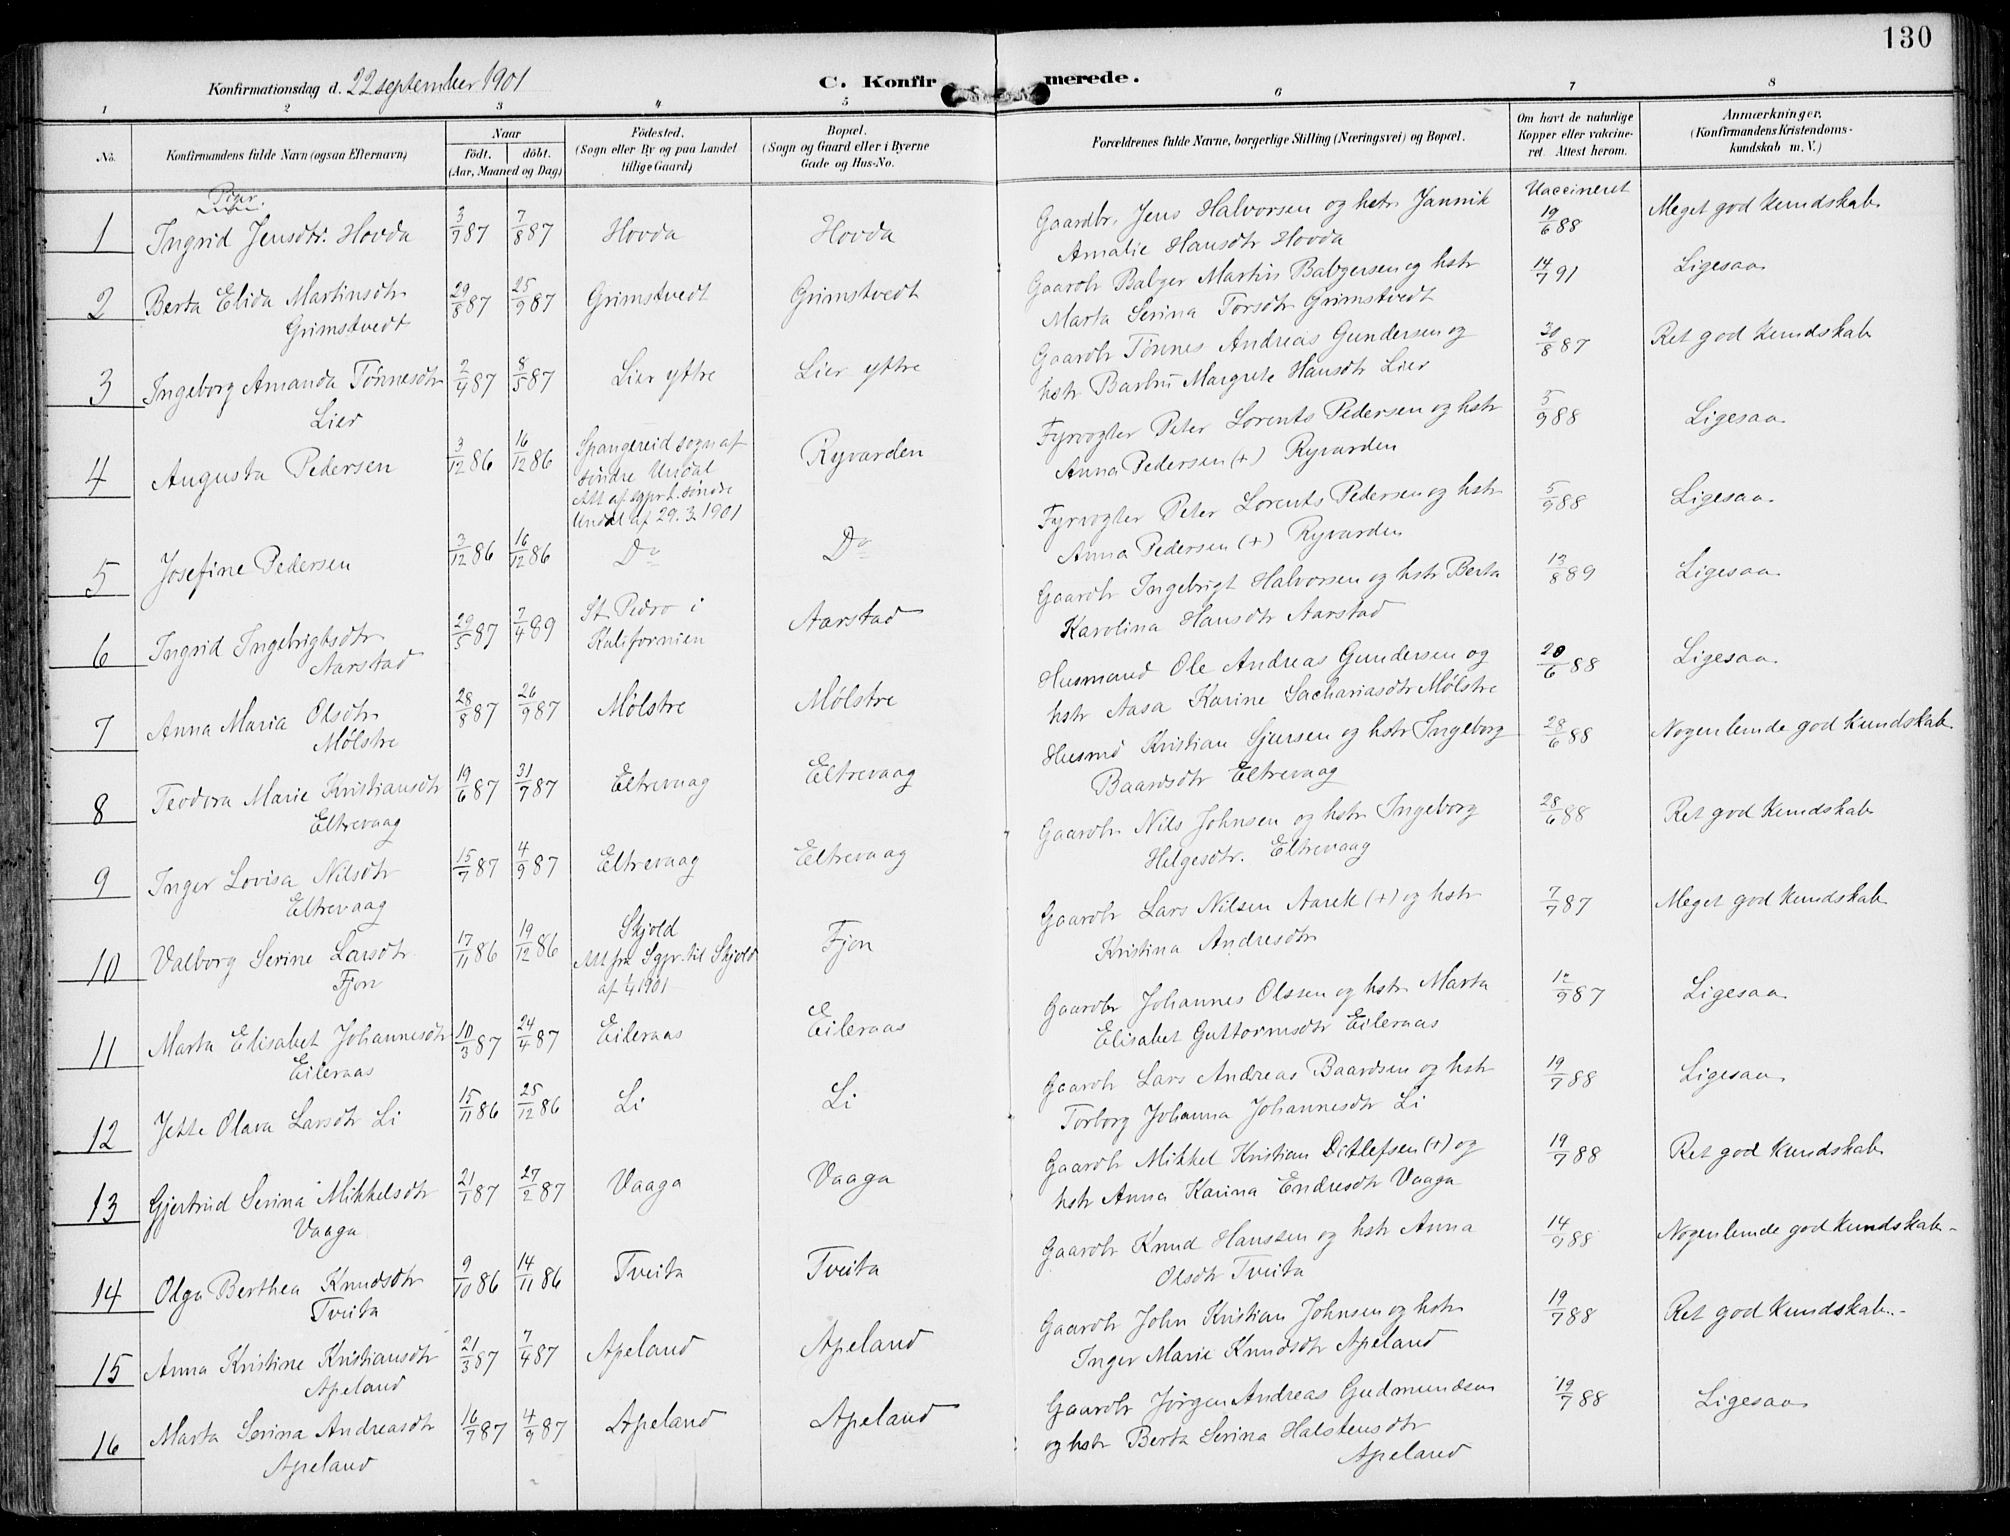 130
Konfirmationsdag d. 22 september 1901
C. Konfirmerede.
1 2 3 4 5 6 7 8
No. Konfirmandens fulde Navn (ogsaa Efternavn) Naar født. døbt. (Aar, Maaned og Dag) Fødested. (Sogn eller By og paa Landet tillige Gaard) Bopæl. (Sogn og Gaard eller i Byerne Gade og Hus-No.) Forældrenes fulde Navne, borgerlige Stilling (Næringsvei) og Bopæl. Om havt de naturlige Kopper eller vaccineret. Attest herom. Anmærkninger, (Konfirmandens Kristendomskundskab m. V.)
Piger.
1 Ingrid Jensdtr. Hovda 3/7 87 7/8 87 Hovda Hovda Gaardbr. Jens Halvorsen og hstr Jannik Vaccineret 19/6 88 Meget god kundskab
Amalie Hansdtr Hovda
2 Berta Elida Martinsdtr 29/8 87 25/9 87 Grimstvedt Grimstvedt Gaardbr Babger Martin Babgersen og hstr 14/7 91 Ligesaa
Grimstvedt Marta Serina Torsdtr Grimstvedt
3 Ingeborg Amanda Tønnesdtr 2/4 87 8/5 87 Lier yttre Lier yttre Gaardbr Tønnes Andreas Gundersen og 30/8 87 Ret god kundskab
Lier hstr Barbru Margrete Hansdtr Lier
4 Augusta Pedersen 3/12 86 16/12 86 Spangereid sogn af Ryvarden Fyrvogter Peter Lorents Pedersen og hstr 5/9 88 Ligesaa
søndre Undal Anna Pedersen (+) Ryvarden
Att af sgpr t. søndre
Undal af 29.3.1901
5 Josefine Pedersen 3/12 86 16/12 86 Do Do Fyrvogter Peter Lorents Pedersen og hstr 5/9 88 Ligesaa
Anna Pedersen (+) Ryvarden
6 Ingrid Ingebrigtsdtr 29/5 87 7/4 89 St. Pedro i Aarstad Gaardbr Ingebrigt Halvorsen og hstr Berta 13/8 89 Ligesaa
Aarstad Kalifornien Karolina Hansdtr Aarstad
7 Anna Maria Olsdtr 28/8 87 26/9 87 Mølstre Mølstre Husmand Ole Andreas Gundersen og 20/6 88 Ligesaa
Mølstre hstr Aasa Karine Sachariasdtr Mølstre
8 Teodora Marie Kristiansdtr 19/6 87 31/7 87 Eltrevaag Eltrevaag Husmd Kristian Sjursen og hstr Ingeborg 28/6 88 Nogenlunde god kundskab
Eltrevaag Baardsdtr Eltrevaag
9 Inger Lovisa Nilsdtr 15/7 87 4/9 87 Eltrevaag Eltrevaag Gaardbr Nils Johnsen og hstr Ingeborg 28/6 88 Ret god kundskab
Eltrevaag Helgesdtr. Eltrevaag
10 Valborg Serine Larsdtr 17/11 86 19/12 86 Skjold Fjon Gaardbr Lars Nilsen Aarek (+) og hstr 7/7 87 Meget god kundskab
Fjon Att fra Sgpr. til Skjold af 1/4 1901 Kristina Andresdtr
11 Marta Elisabet Johannesdtr 10/3 87 24/4 87 Eileraas Eileraas Gaardbr Johannes Olssen og hstr Marta 12/9 87 Ligesaa
Eileraas Elisabet Guttormsdtr Eileraas
12 Jette Olava Larsdtr Li 15/11 86 25/12 86 Li Li Gaardbr Lars Andreas Baardsen og hstr 19/7 88 Ligesaa
Torborg Johanna Johannesdtr Li
13 Gjertrud Serina Mikkelsdtr 21/1 87 27/2 87 Vaaga Vaaga Gaardbr Mikkel Kristian Ditlefsen (+) og 19/7 88 Ret god kundskab
Vaaga hstr Anna Karina Endresdtr Vaaga
14 Olga Berthea Knudsdtr 9/10 86 14/11 86 Tveita Tveita Gaardbr Knud Hanssen og hstr Anna 14/9 88 Nogenlunde god kundskab
Tveita Olsdtr Tveita
15 Anna Kristine Kristiansdtr 21/3 87 7/4 87 Apeland Apeland Gaardbr John Kristian Johnsen og hstr 19/7 88 Ret god kundskab
Apeland Inger Marie Knudsdtr Apeland
16 Marta Serina Andreasdtr 16/7 87 4/9 87 Apeland Apeland Gaardbr Jørgen Andreas Gudmundsen 19/7 88 Ligesaa
Apeland og hstr Berta Serina Halstensdtr
Apeland